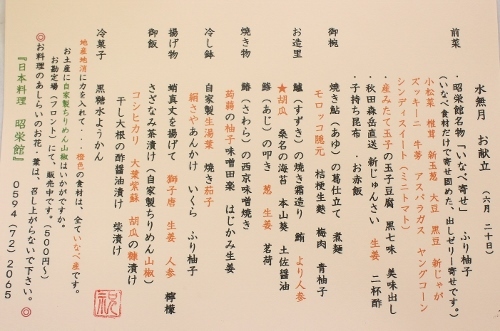 水無月 お献立 (六月 二十日)
前菜
・昭栄館名物「いなべ寄せ」 ふり柚子
(いなべ食材だけで寄せ固めた、出しゼリー寄せです。)
小松菜 椎茸 新玉葱 大豆 黒豆 新じゃが
ズッキーニ 牛蒡 アスパラガス ヤングコーン
シンディスイート(ミニトマト)
・産みたて玉子の玉子豆腐 黒七味 美味出し
・秋田森岳直送 新じゅんさい 生姜 二杯酢
・子持ち昆布 ・お赤飯
御椀 焼き鮎(あゆ)の葛仕立て 煮麺
モロッコ隠元 桔梗生麩 梅肉 青柚子
お造里 鱸(すずき)の焼き霜造り 鮪 より人参
★胡瓜 桑名の海苔 本山葵 土佐醤油
鯵(あじ)の叩き 葱 生姜 茗荷
焼き物 鰆(さわら)の西京味噌焼き
蒟蒻の柚子味噌田楽 はじかみ生姜
冷し鉢 自家製生湯葉 焼き茄子
絹さやあんかけ いくら ふり柚子
揚げ物 蛸真丈を揚げて 獅子唐 生姜 人参 檸檬
御飯 さざなみ茶漬け(自家製ちりめん山椒)
コシヒカリ 大葉紫蘇 胡瓜の糠漬け
干し大根の酢醤油漬け 柴漬け
冷菓子 黒糖水ようかん
地産地消に力を入れて・・橙色の食材は、全ていなべ産です。
お土産に自家製ちりめん山椒はいかがですか。
お勘定場(フロント)にて、販売中です。(500円〜)
◎お料理のあしらいのお花・葉は、召し上がらないで下さい。◎
『日本料理 昭栄館』 0594(72)2065